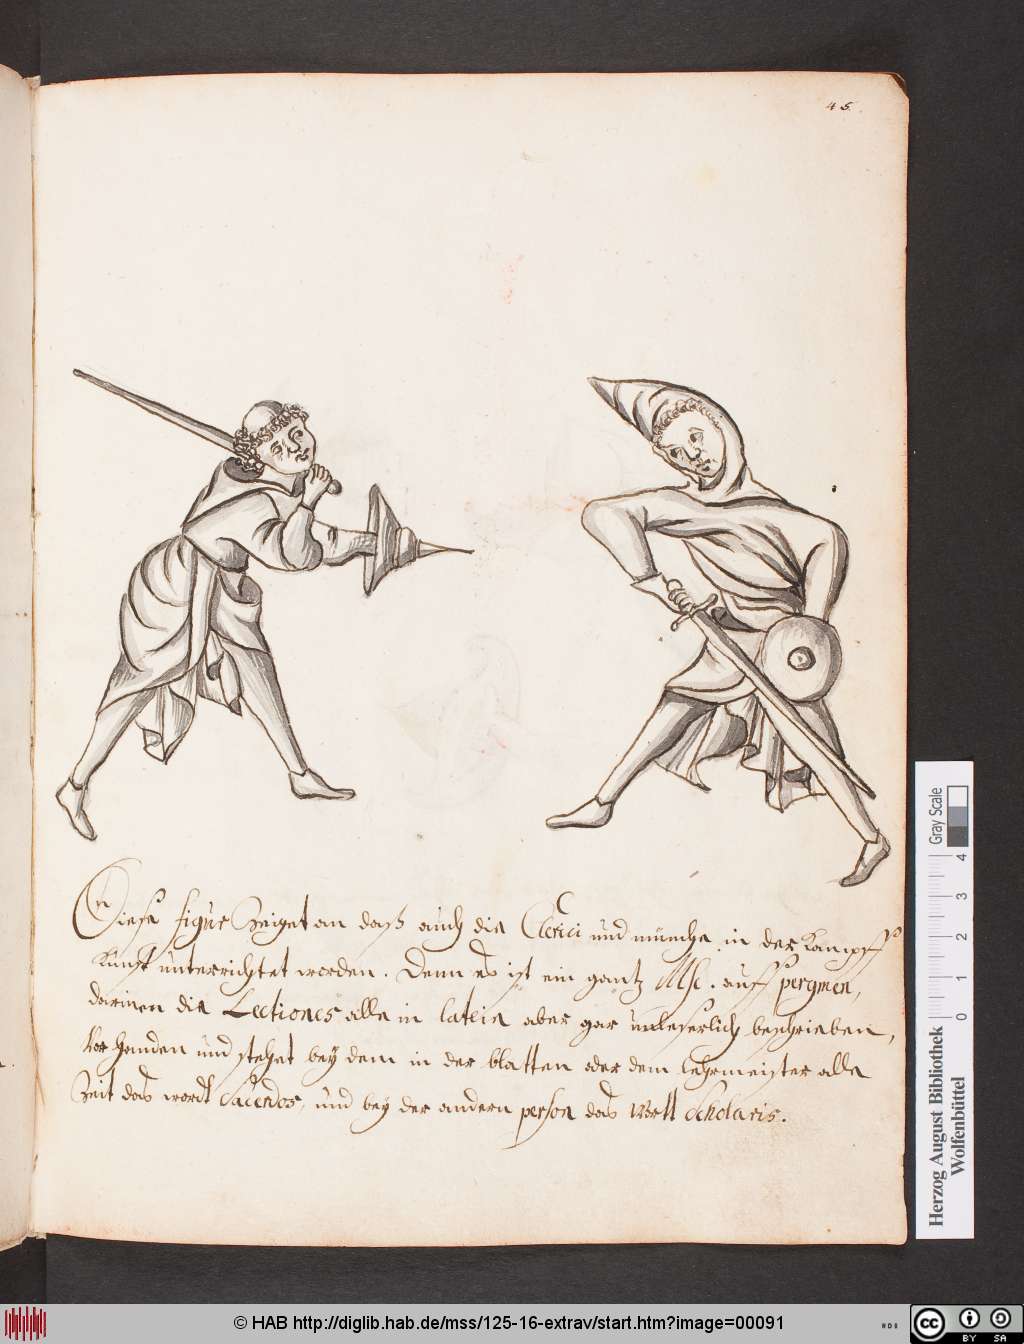 45.
Diese figur Zeiget an daß auch die Clerici und münche in der Kampff
Kunst unterrichtet worden. Denn es ist ein gantz Msc. auff pergmen,
darinen die Lectiones alle in latein aber gar unleserlich beschrieben,
Vorhanden und stehet bey dem in der blatten oder dem lehrmeister alle
Zeit das wordt Sacerdos, und bey der andern person das Wortt Scholaris.
Gray Scale
0 1 2 3 4
Herzog August Bibliothek
Wolfenbüttel
© HAB http://diglib.hab.de/mss/125-16-extrav/start.htm?image=00091
cc BY SA